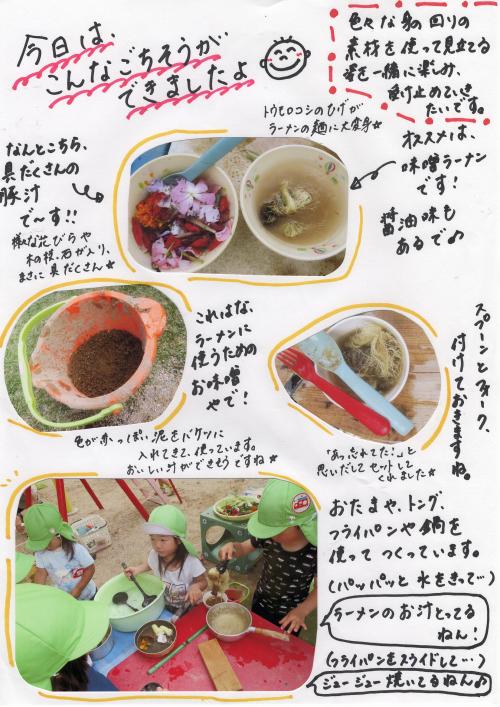 今日は、
こんなごちそうが
できましたよ
色々な身の回りの
素材を使って見立てる
事を一緒に楽しみ、
受け止めていき
たいです。
トウモロコシのひげが
ラーメンの麺に大変身☆
なんとこちら、
具だくさんの
豚汁
で〜す!!
様々な花びらや
木の枝、石が入り、
まさに具だくさん☆
オススメは、
味噌ラーメン
です!
醤油味も
あるで♪
これはな、
ラーメンに
使うための
お味噌
やで!
色が赤っぽい泥をバケツに
入れてきて、使っています。
おいしい汁ができそうですね☆
スプーンとフォーク、
付けておきますね。
「あっ、忘れてた!」と
思いだしてセットして
くれました☆
おたまや、トング、
フライパンや鍋を
使ってつくっています。
(パッパッと水をきって…)
ラーメンのお汁とってる
ねん!
(フライパンをスライドして…)
ジュージュー焼いてるねん♪